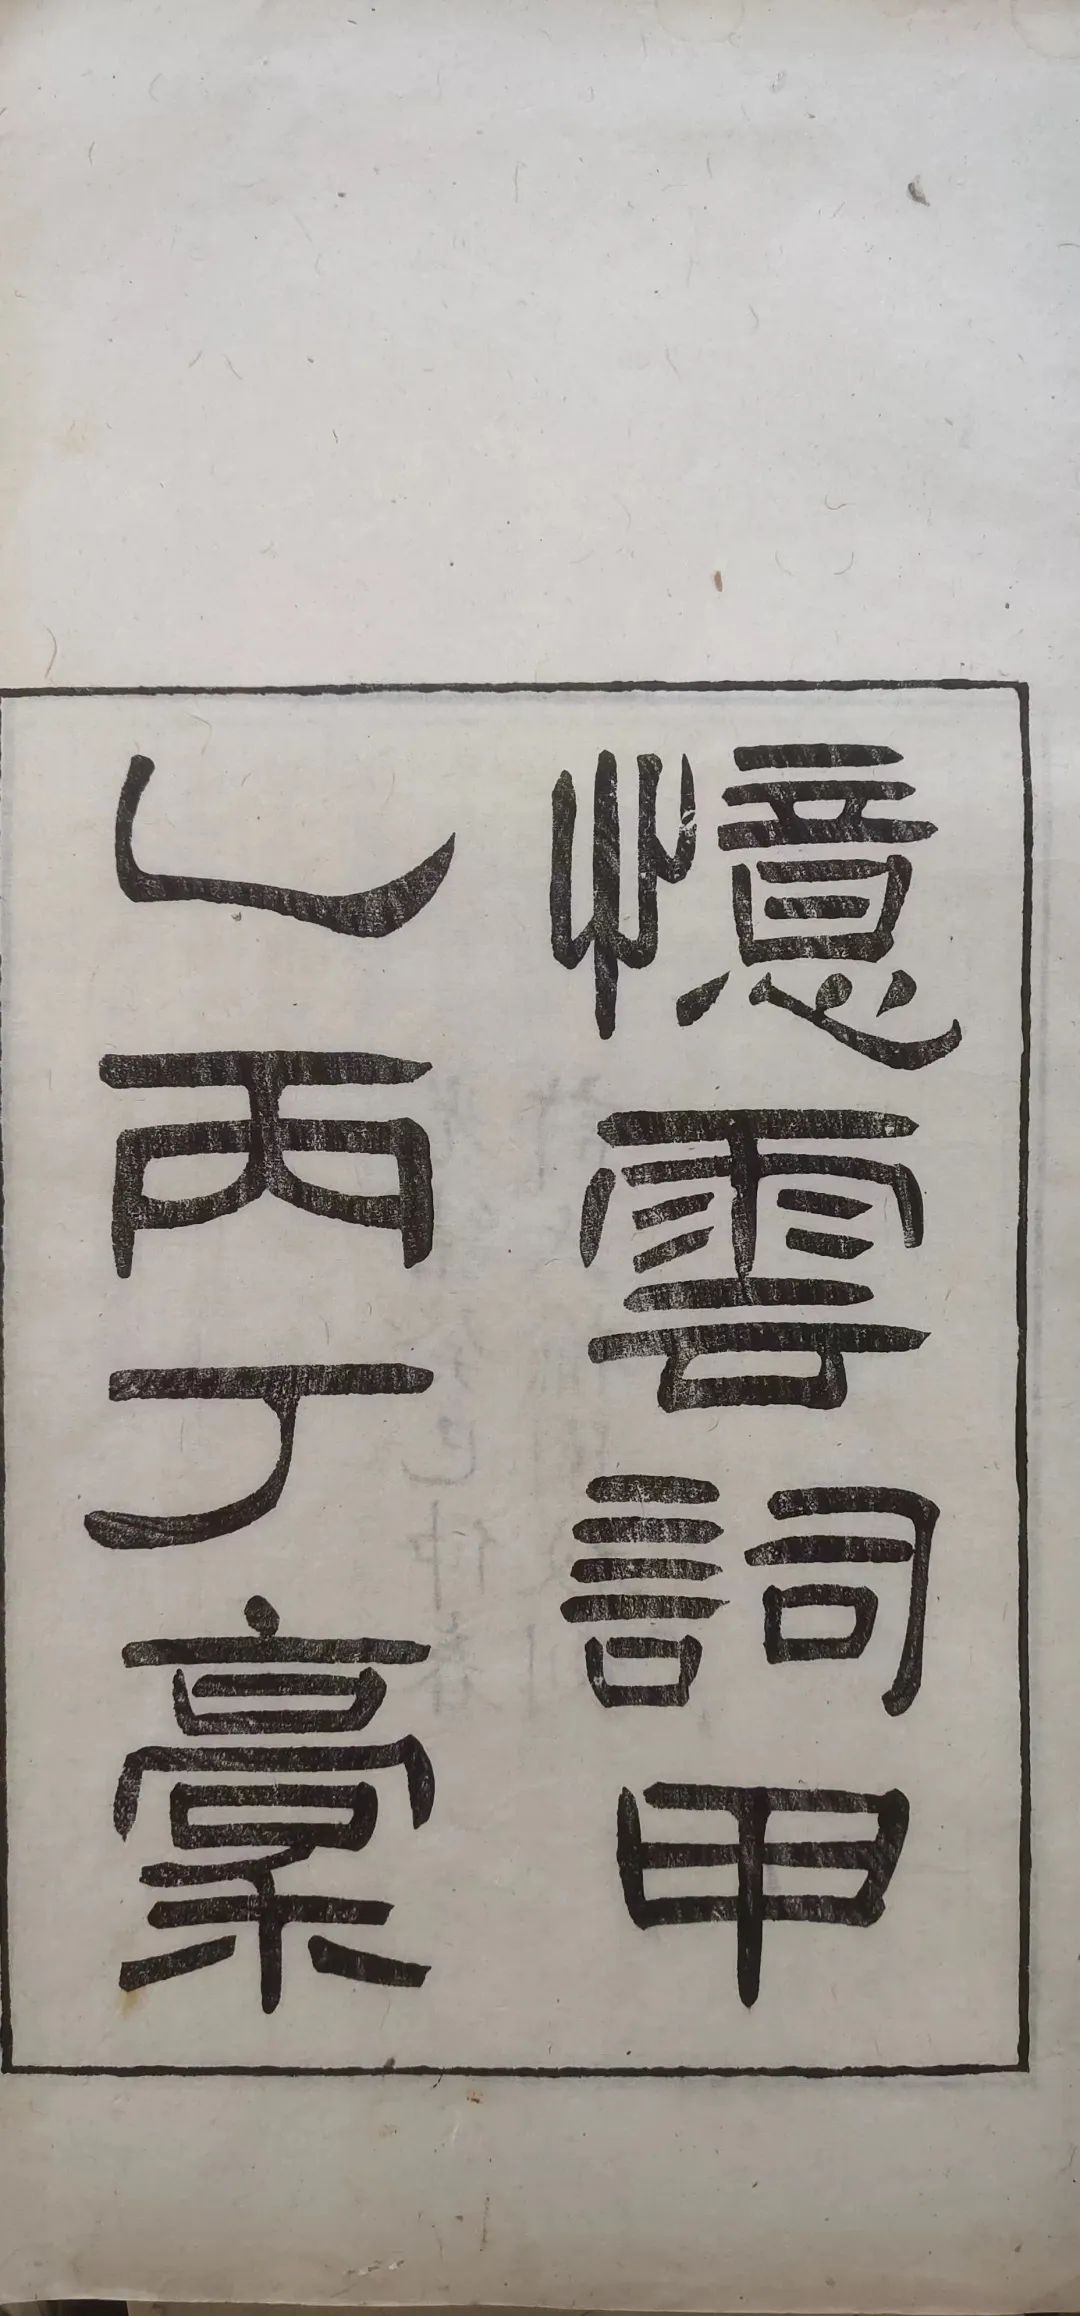 憶雲詞甲
乙丙丁稾